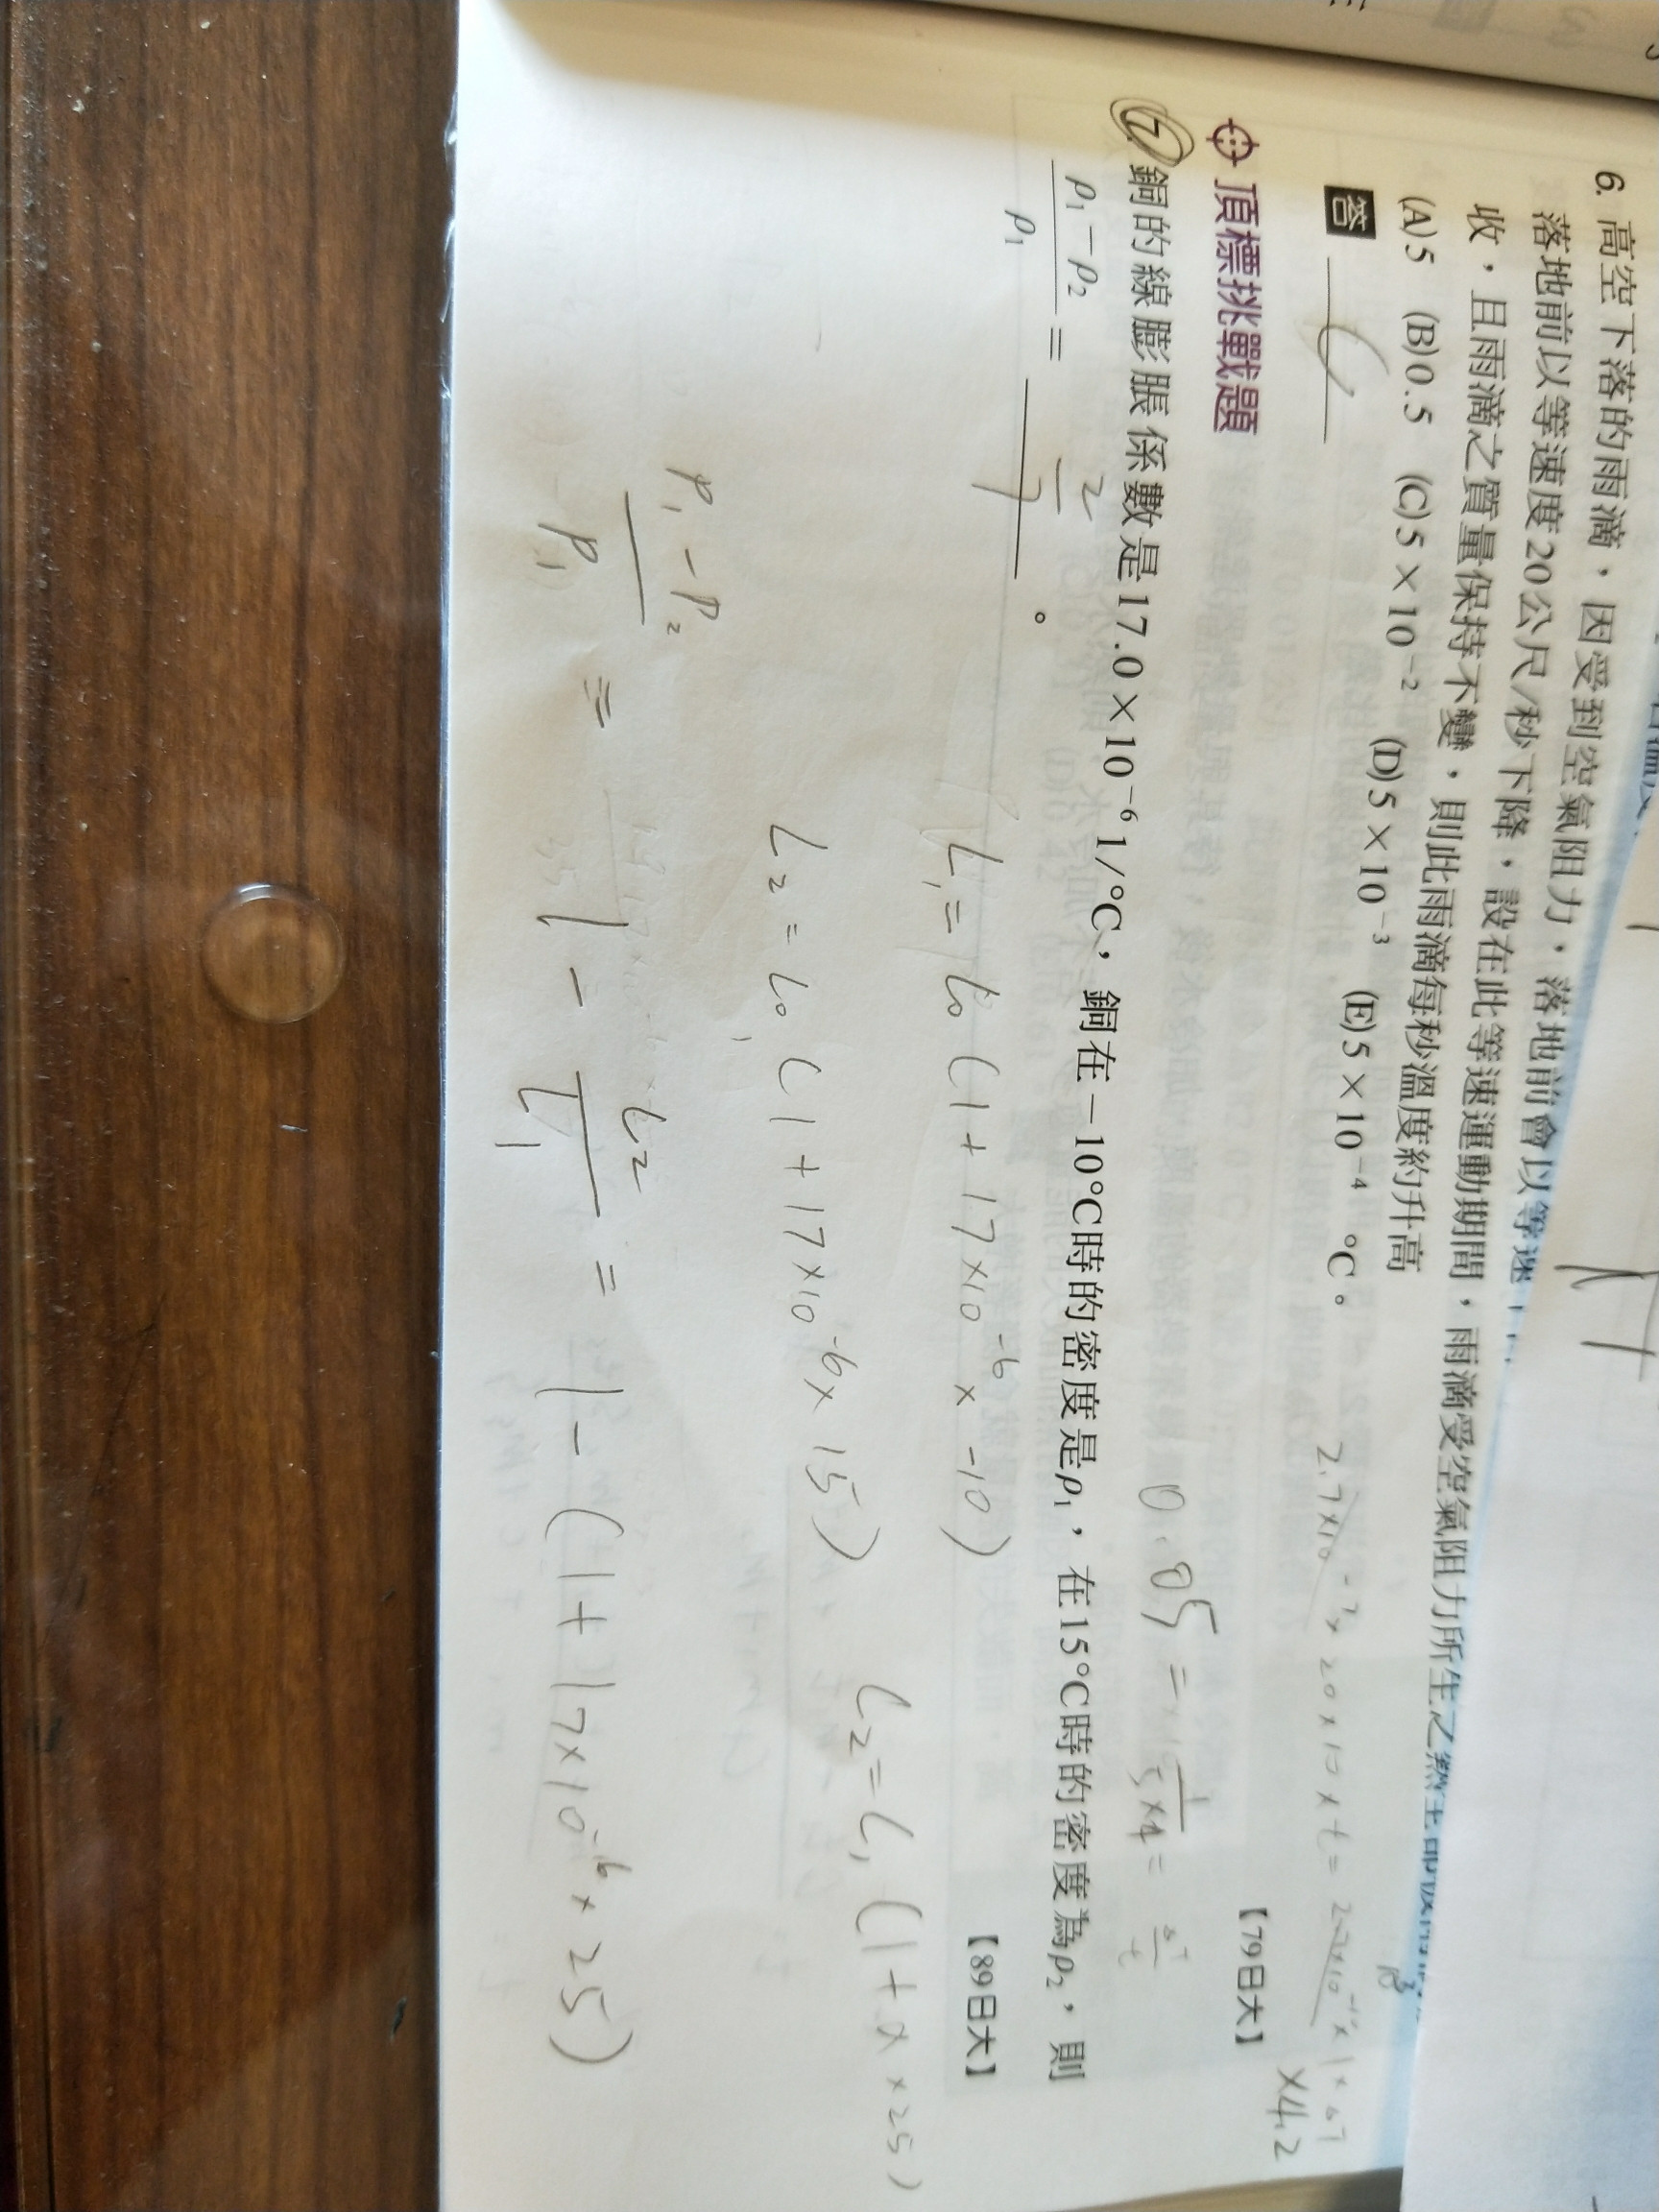 6. 高空下落的雨滴，因受到空氣阻力，落地前會以等速
落地前以等速度20公尺/秒下降，設在此等速運動期間，雨滴受空氣阻力所生之熱
收，且雨滴之質量保持不變，則此雨滴每秒溫度約升高
(A)5 (B)0.5 (C)5×10⁻² (D)5×10⁻³ (E)5×10⁻⁴ °C。
答 C
【79日大】
×4.2
頂標挑戰題
0.05 =
7. 銅的線膨脹係數是17.0×10⁻⁶ 1/°C，銅在－10°C時的密度是ρ₁，在15°C時的密度為ρ₂，則
(ρ₁－ρ₂)/ρ₁ = 。
【89日大】
L₁ = L₀ (1 + 17×10⁻⁶ × -10)
L₂ = L₀ (1 + 17×10⁻⁶ × 15)
L₂ = L₁ (1 + α × 25)
(ρ₁ - ρ₂)/ρ₁ = 1 - L₂/L₁ = 1 - (1 + 17×10⁻⁶ × 25)